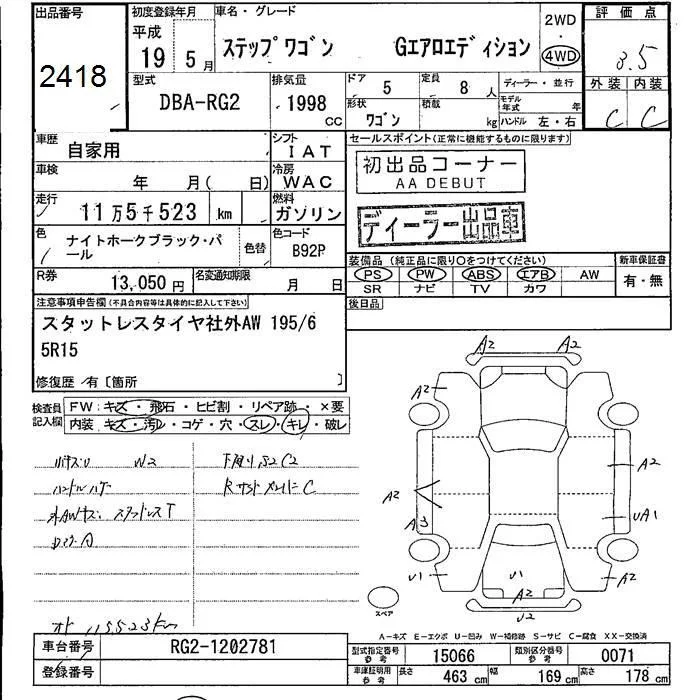 出品番号
2418
初度登録年月
平成
19 5月
車名・グレード
ステップワゴン Gエアロエディション
2WD
・
4WD
評価点
3.5
型式
DBA-RG2
排気量
1998
cc
ドア
5
定員
8人
形状
ワゴン
積載
kg
ディーラー・並行
モデル年式
年
ハンドル 左・右
外装 内装
C C
車歴
自家用
シフト
IAT
車検
年 月( 日)
冷房
WAC
走行
11万5千523 km
燃料
ガソリン
色
ナイトホークブラック・パ
ール
色替
色コード
B92P
R券
13,050円
名変通知期限
月 日
セールスポイント(正常に機能するものに限ります)
初出品コーナー
AA DEBUT
ディーラー出品車
装備品 (純正品に限り○をつけてください)
PS PW ABS エアB AW
SR ナビ TV カワ
新車保証書
有・無
後日品
注意事項申告欄(不具合内容等は具体的に記入して下さい)
スタットレスタイヤ社外AW 195/6
5R15
修復歴 有〔箇所 〕
検査員
記入欄
FW:キズ・飛石・ヒビ割・リペア跡・×要
内装:キズ・汚レ・コゲ・穴・スレ・キレ・破レ
W2
ハンドルハゲ
外AWキズ スタッドレスT
下廻りS2C2
RサイドメンバーC
オド 115523km
A2
A2
A2
A2
A2
A3
UA1
U1
U1
A2
A2
U2
スペア
A-キズ E-エクボ U-凹み W-補修跡 S-サビ C-腐食 XX-交換済
車台番号
RG2-1202781
登録番号
型式指定番号
参考
15066
類別区分番号
参考
0071
車庫証明用
参考
長さ
463 cm
幅
169 cm
高さ
178 cm